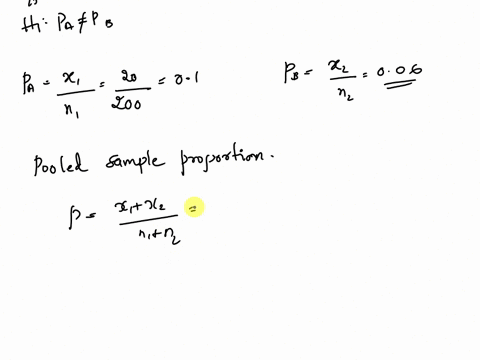 H₁: P_A ≠ P_B
P_A = x₁/n₁ = 20/200 = 0.1
P_B = x₂/n₂ = 0.06
Pooled sample proportion.
p = x₁+x₂/n₁+n₂ =